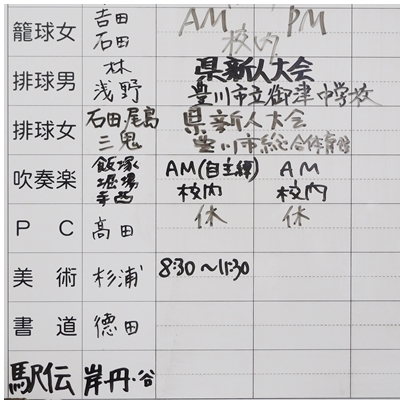 籠球女 吉田 石田 AM PM 校内
排球男 林 浅野 県新人大会 豊川市立御津中学校
排球女 石田 尾島 三鬼 県新人大会 豊川市総合体育館
吹奏楽 飯塚 堀場 寺西 AM(自主練) 校内 AM 校内
PC 髙田 休 休
美術 杉浦 8:30〜11:30
書道 德田
駅伝 岸 丹・谷